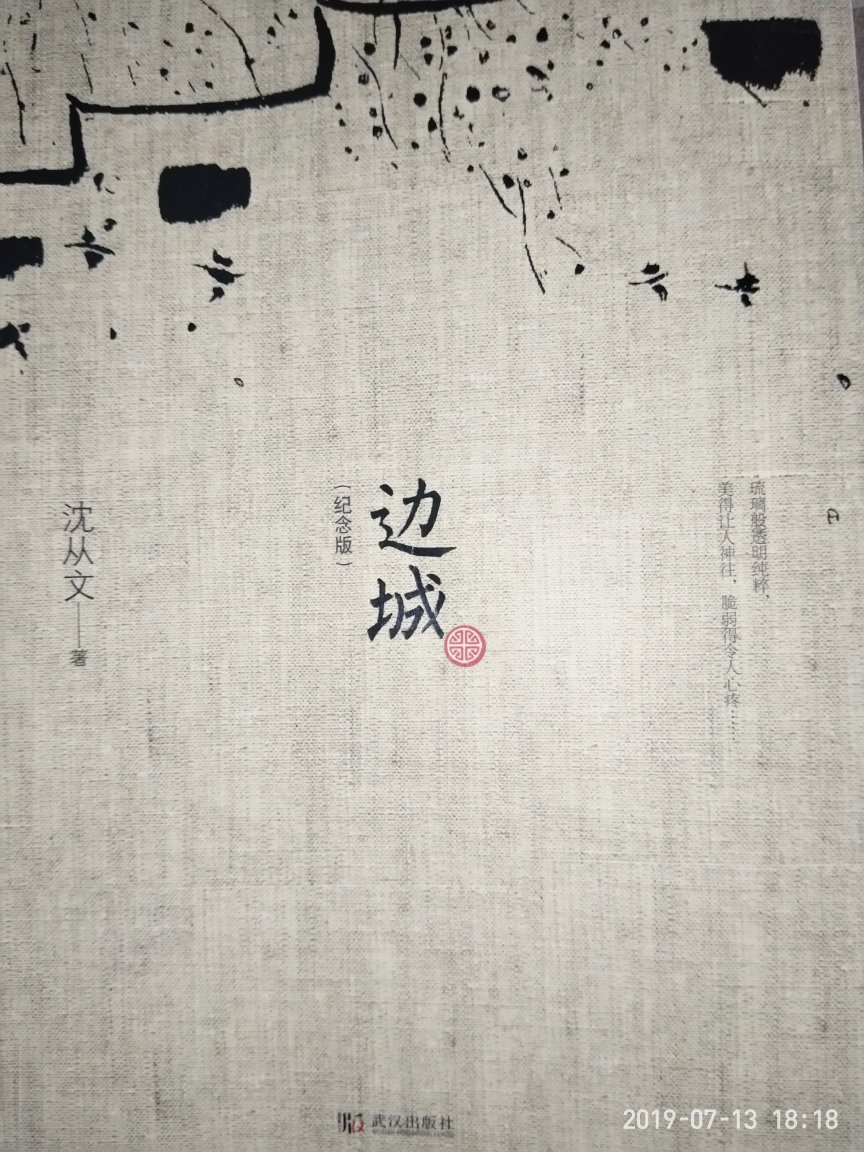 琉璃般透明纯粹，
美得让人神往，脆弱得令人心疼……
边城
（纪念版）
沈从文——著
武汉出版社
2019-07-13 18:18